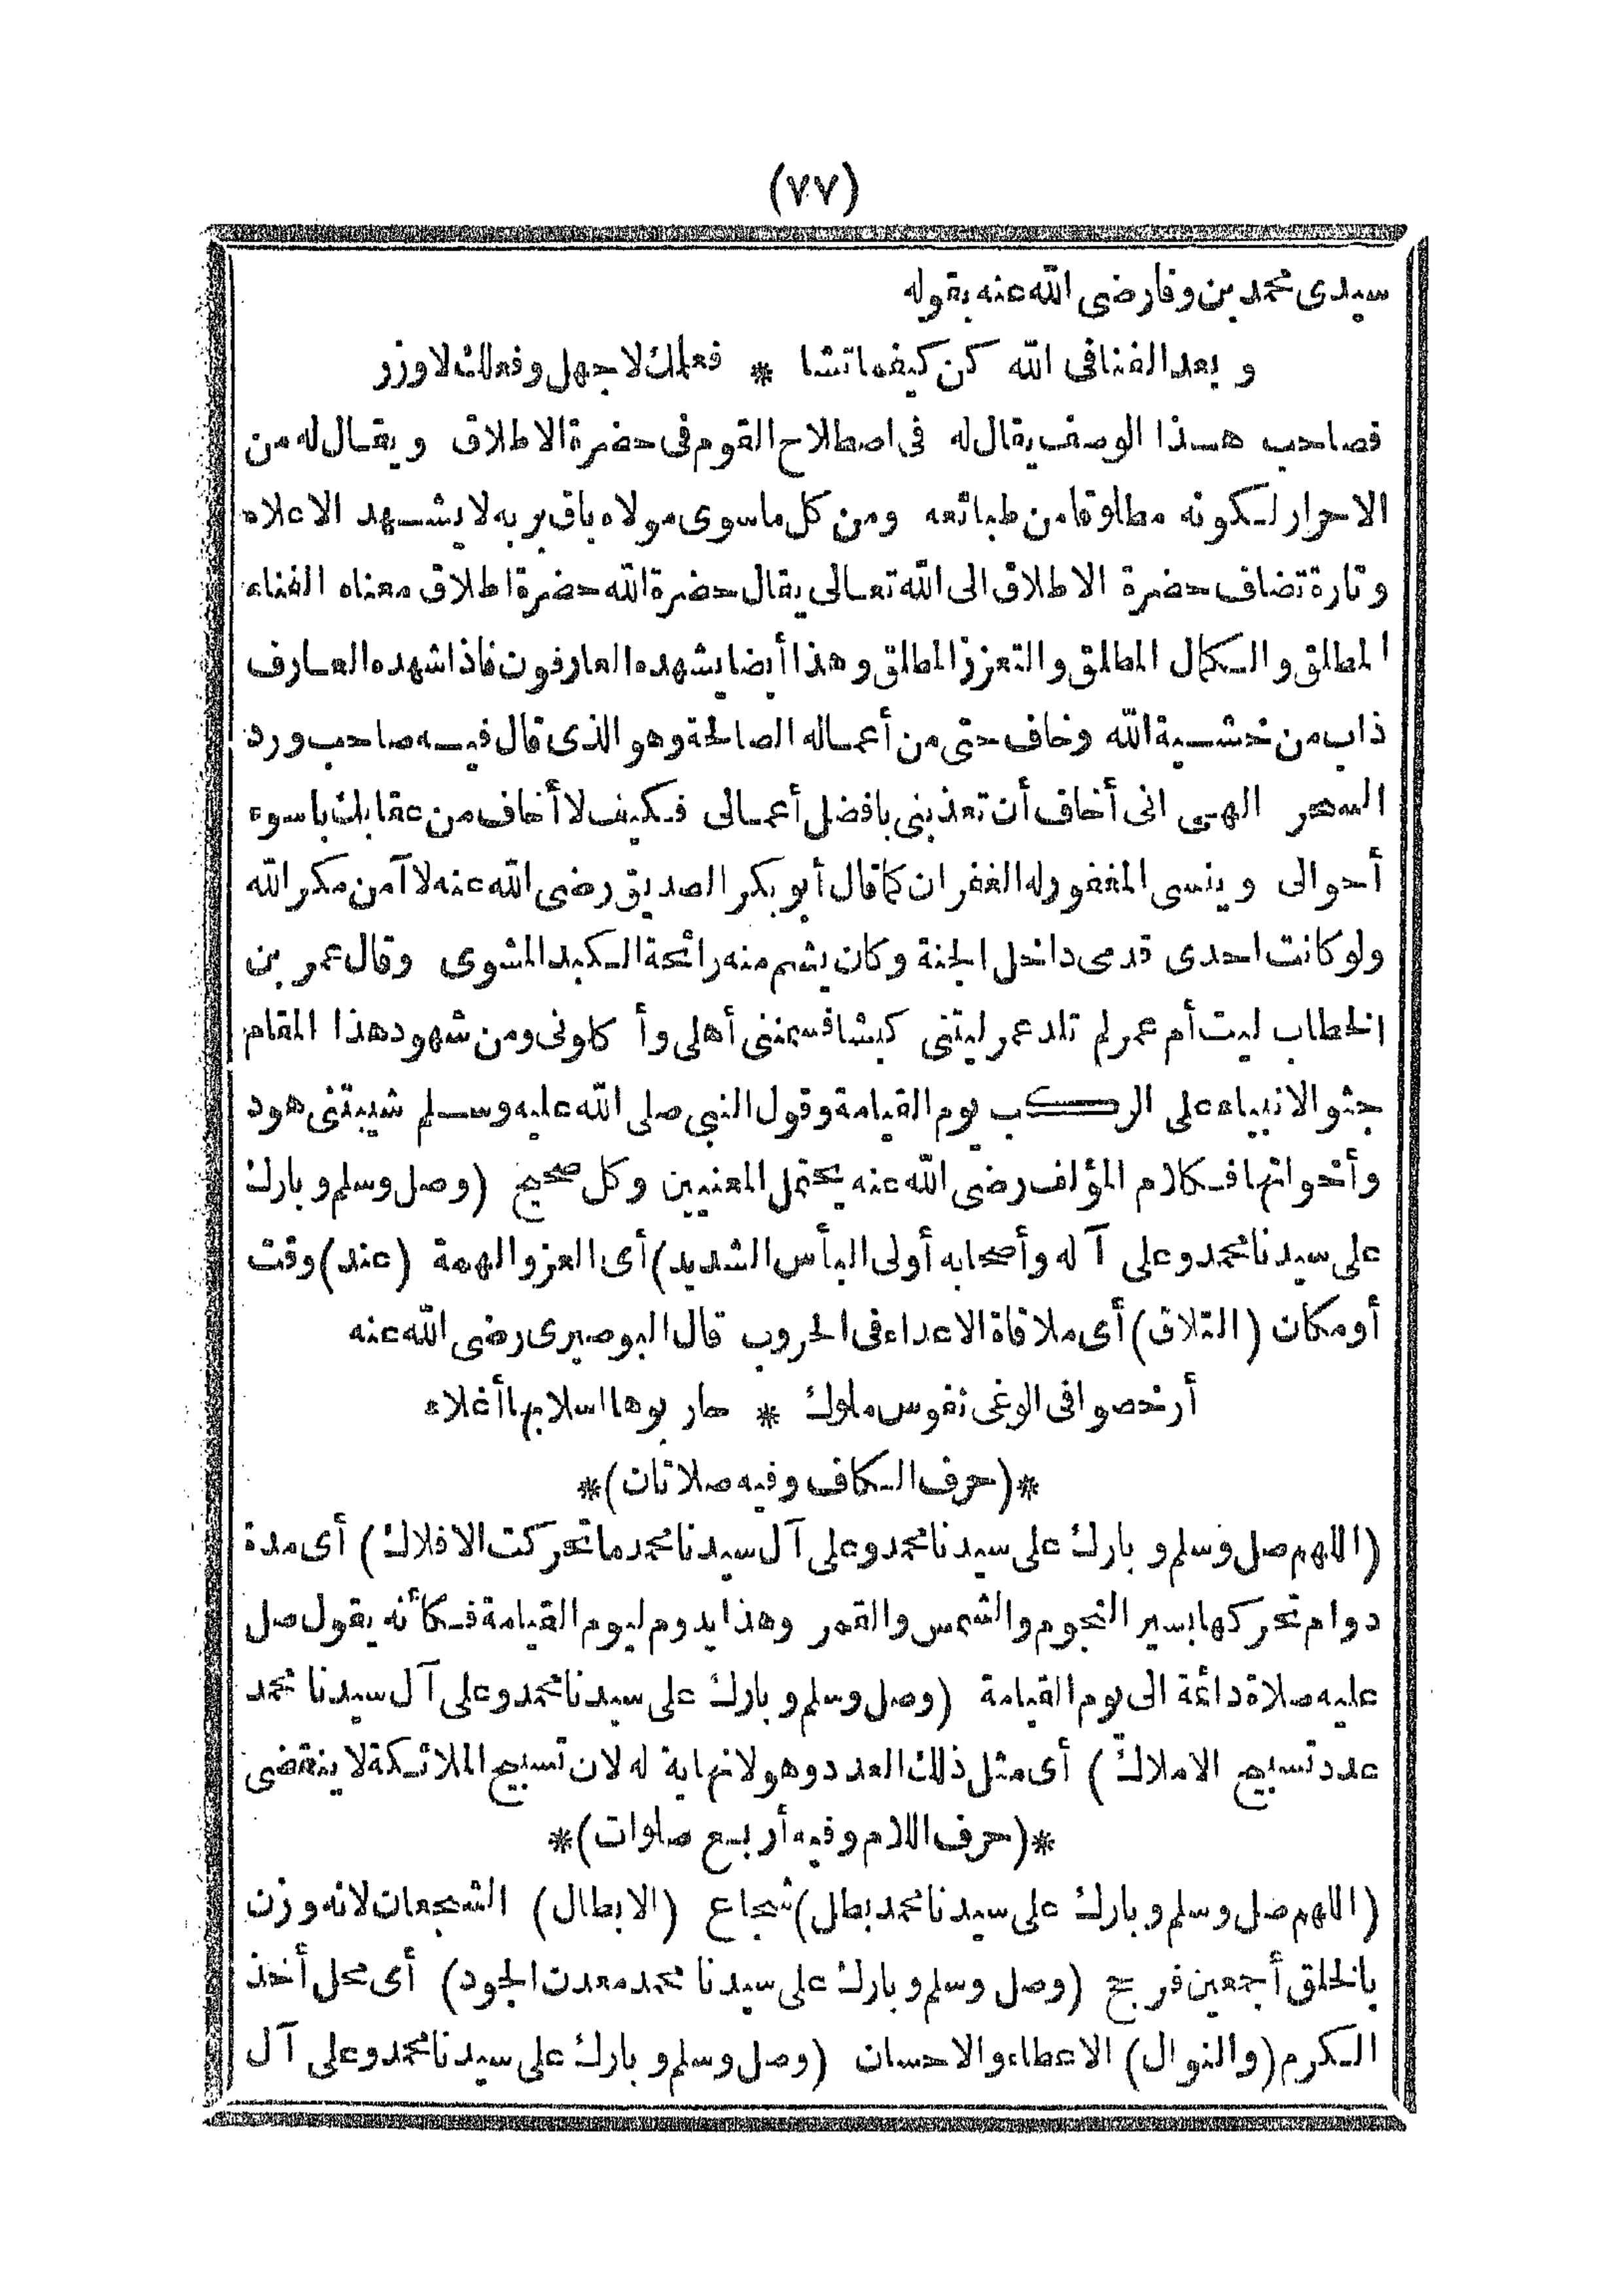 (٧٧)
سيدى محمد بن وفا رضى الله عنه بقوله
و بعد الفنا فى الله كن كيفما تشا * فعلمك لا جهل وفعلك لا وزر
فصاحب هذا الوصف يقال له فى اصطلاح القوم فى حضرة الاطلاق ويقال له من
الاحرار لكونه مطلوقا من طبائعه ومن كل ما سوى مولاه باق بربه لا يشهد الاعلاه
وتارة تضاف حضرة الاطلاق الى الله تعالى يقال حضرة الله حضرة اطلاق معناه الغناء
المطلق والكمال المطلق والتعزز المطلق وهذا أيضا يشهده العارفون فاذا شهده العارف
ذاب من خشية الله وخاف حتى من أعماله الصالحة وهو الذى قال فيه صاحب ورد
السحر الهى انى أخاف أن تعذبنى بافضل أعمالى فكيف لا أخاف من عقابك باسوء
أحوالى وينسى المغفور له الغفران كما قال أبو بكر الصديق رضى الله عنه لا آمن مكر الله
ولو كانت احدى قدمى داخل الجنة وكان يشم منه رائحة الكبد المشوى وقال عمر بن
الخطاب ليت أم عمر لم تلد عمر ليتنى كبشا فسمننى أهلى وأكلونى ومن شهود هذا المقام
جثو الانبياء على الركب يوم القيامة وقول النبى صلى الله عليه وسلم شيبتنى هود
وأخواتها فكلام المؤلف رضى الله عنه يحتمل المعنيين وكل صحيح (وصل وسلم وبارك
على سيدنا محمد وعلى آله وأصحابه أولى البأس الشديد) أى العز والهمة (عند) وقت
أو مكان (التلاق) أى ملاقاة الاعداء فى الحروب قال البوصيرى رضى الله عنه
أرخصوا فى الوغى نفوس ملوك * حاربوها اسلابها أغلاء
*(حرف الكاف وفيه صلاتان)*
(اللهم صل وسلم وبارك على سيدنا محمد وعلى آل سيدنا محمد ما تحركت الافلاك) أى مدة
دوام تحركها بسير النجوم والشمس والقمر وهذا يدوم ليوم القيامة فكأنه يقول صل
عليه صلاة دائمة الى يوم القيامة (وصل وسلم وبارك على سيدنا محمد وعلى آل سيدنا محمد
عدد تسبيح الاملاك) أى مثل ذلك العدد وهو لا نهاية له لان تسبيح الملائكة لا ينقضى
*(حرف اللام وفيه أربع صلوات)*
(اللهم صل وسلم وبارك على سيدنا محمد بطل) شجاع (الابطال) الشجعان لانه وزن
بالخلق أجمعين فرجح (وصل وسلم وبارك على سيدنا محمد معدن الجود) أى محل أخذ
الكرم (والنوال) الاعطاء والاحسان (وصل وسلم وبارك على سيدنا محمد وعلى آل